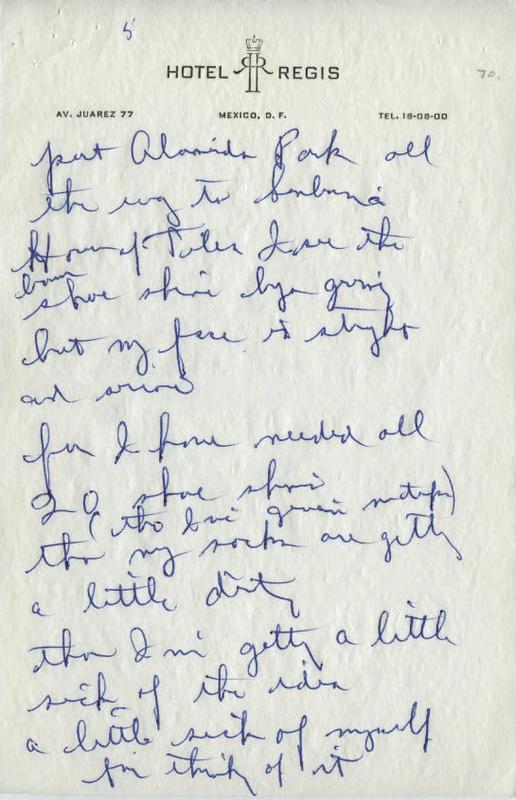 5
HOTEL RR REGIS
70.
AV. JUAREZ 77 MEXICO, D. F. TEL. 18-08-00
past Alameda Park all
the way to Sanborn's
House of Tiles I see the
brown
shoe shine boys grinning
but my face is straight
and serious
for I have needed all
20 shoe shines
(tho I've given no tips)
tho my socks are getting
a little dirty
tho I'm getting a little
sick of the idea
a little sick of myself
for thinking of it